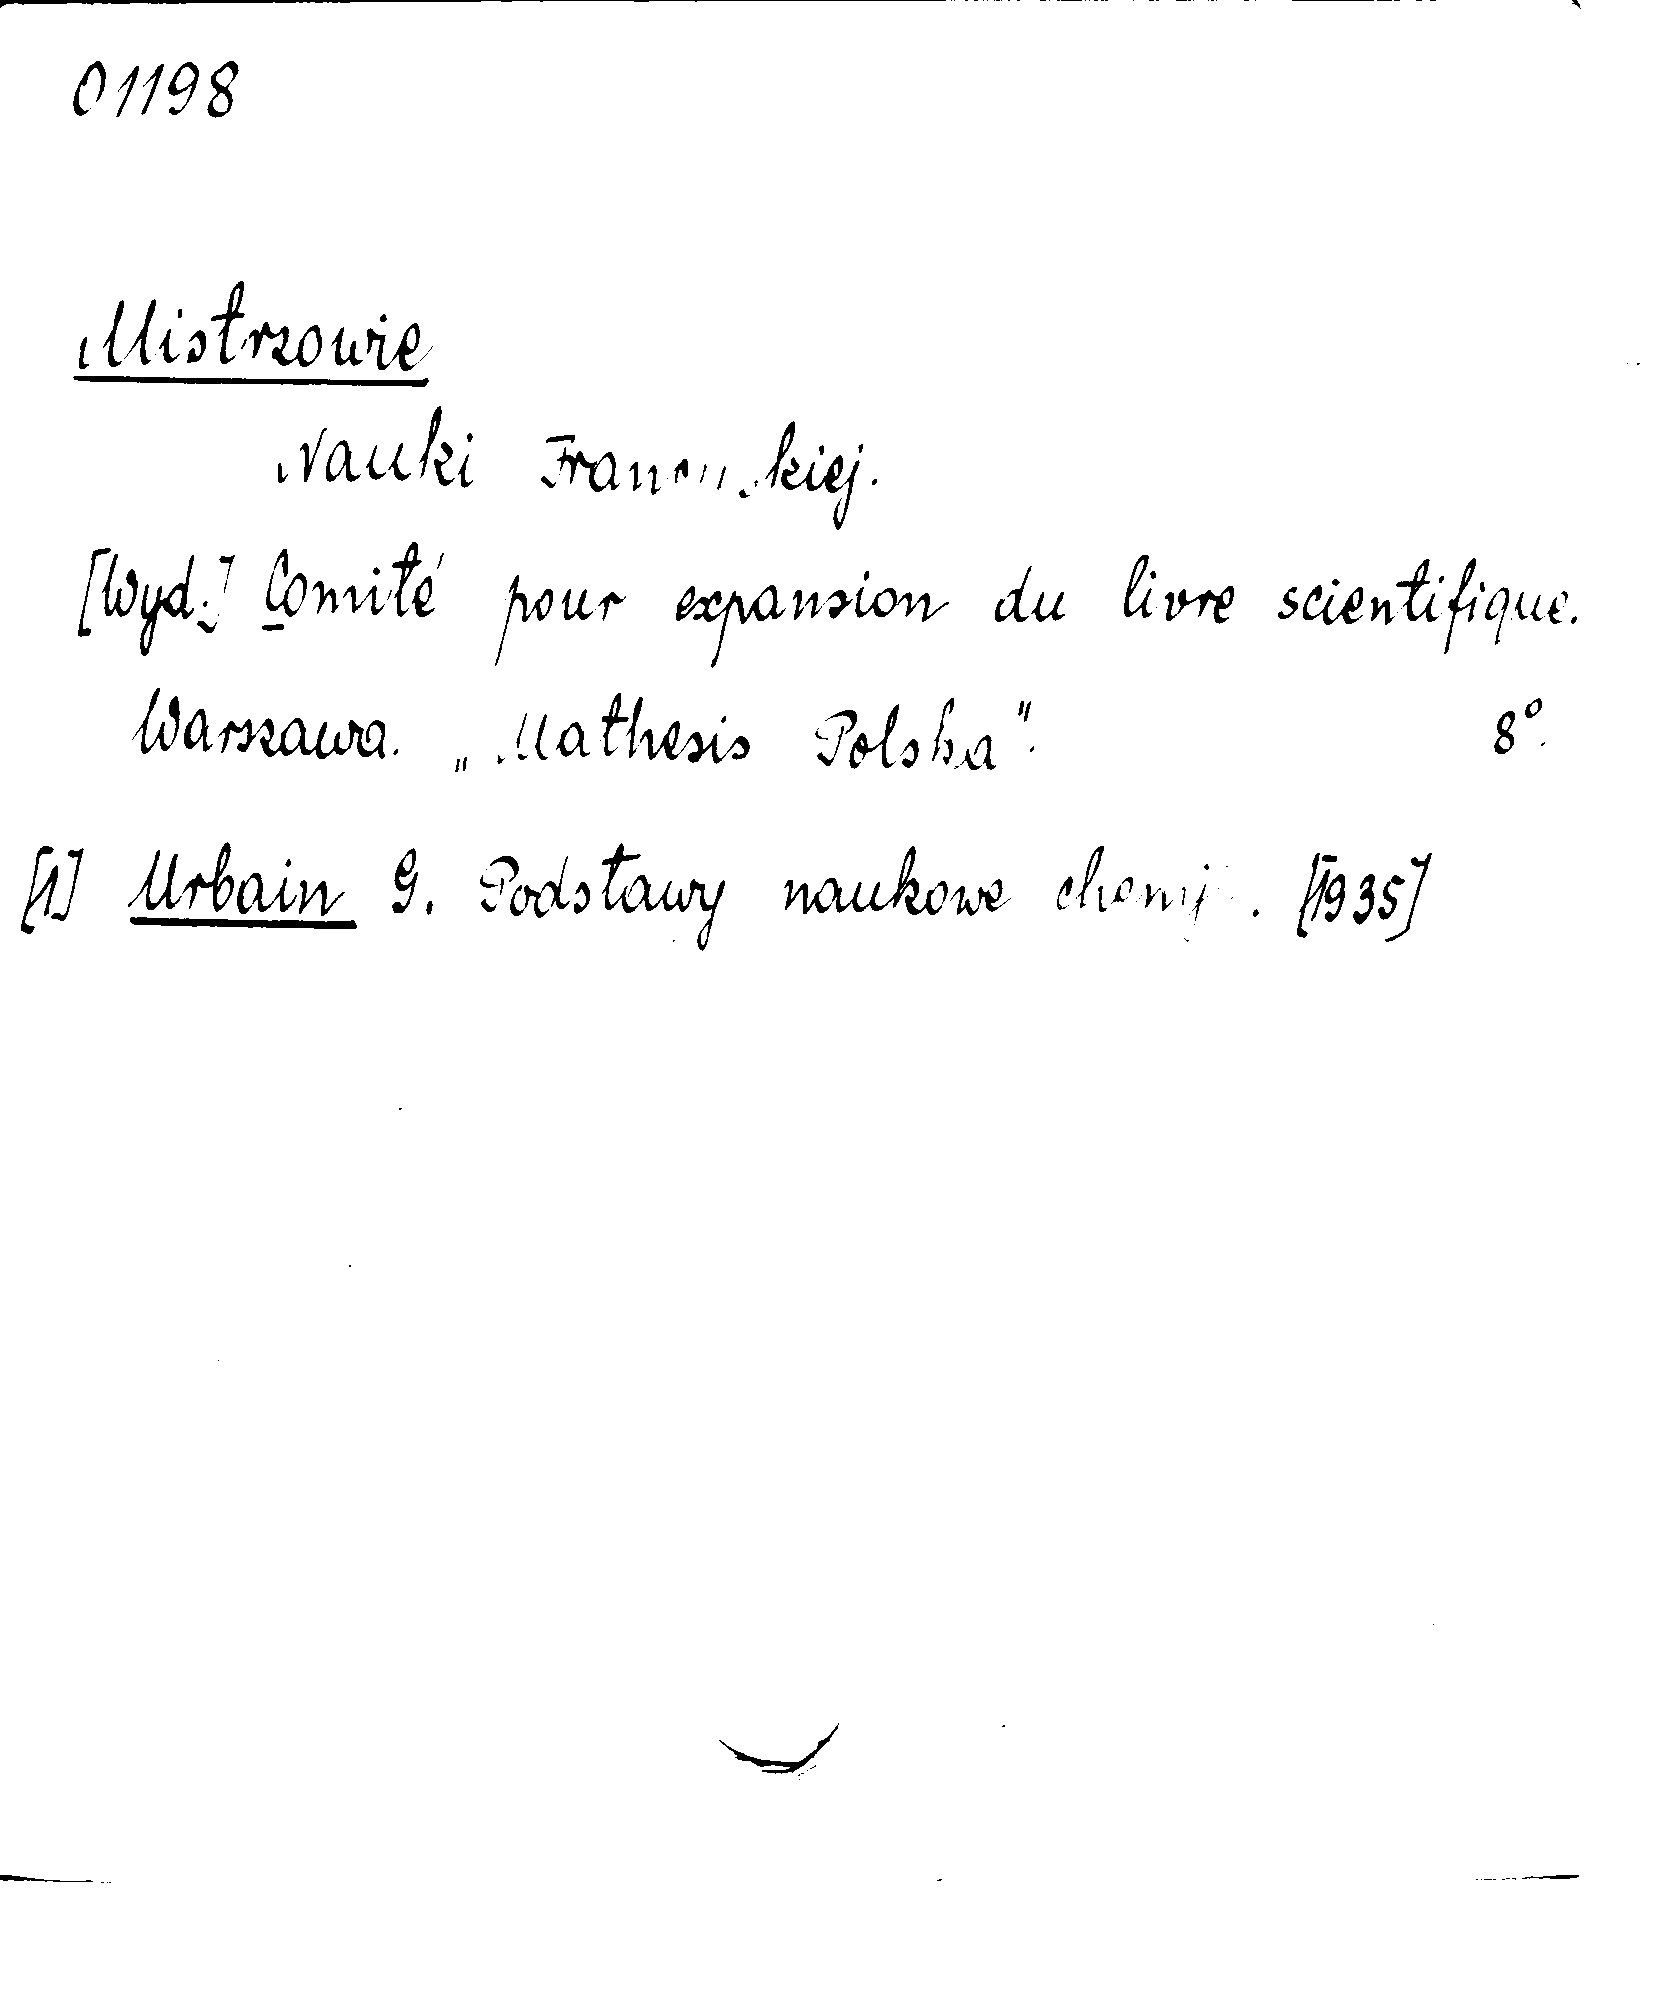 01198
Mistrzowie
Nauki Francuskiej.
[Wyd.:] Comité pour expansion du livre scientifique.
Warszawa. „Mathesis Polska". 8°.
[1] Urbain G. Podstawy naukowe chemji. [1935]